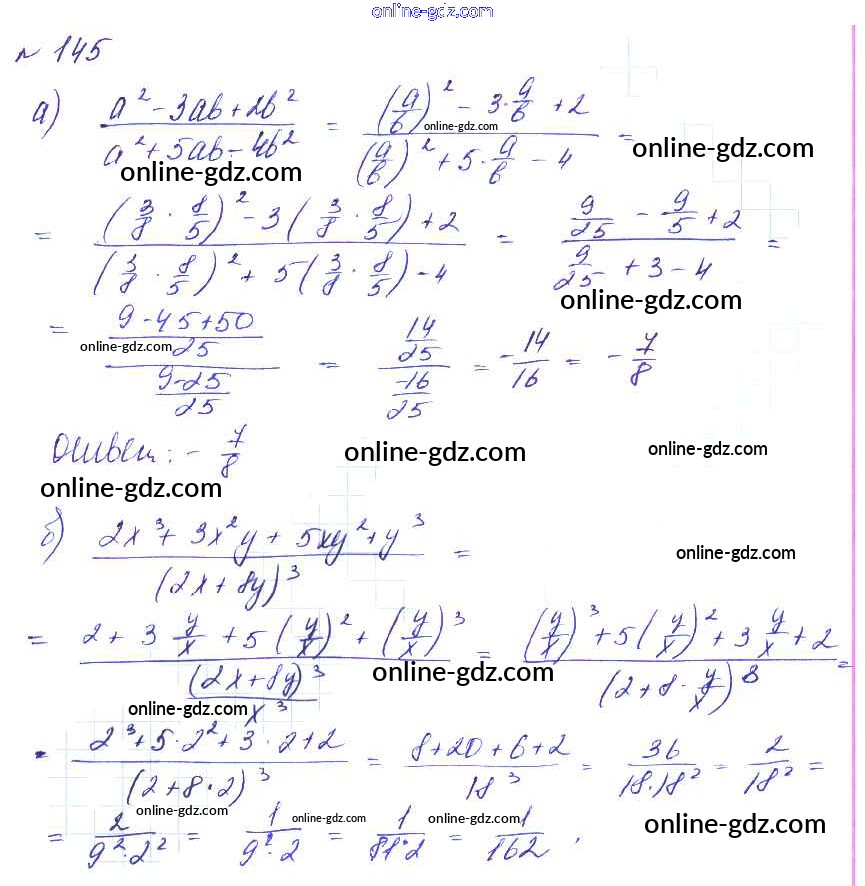 online-gdz.com
№ 145
а) (a² - 3ab + 2b²)/(a² + 5ab - 4b²) = ((a/b)² - 3·a/b + 2)/((a/b)² + 5·a/b - 4) =
online-gdz.com
online-gdz.com
online-gdz.com
= ((3/8 · 8/5)² - 3(3/8 · 8/5) + 2)/((3/8 · 8/5)² + 5(3/8 · 8/5) - 4) = (9/25 - 9/5 + 2)/(9/25 + 3 - 4) =
online-gdz.com
= ((9 - 45 + 50)/25)/((9 - 25)/25) = (14/25)/(-16/25) = -14/16 = -7/8
online-gdz.com
Ответ: - 7/8
online-gdz.com
online-gdz.com
online-gdz.com
б) (2x³ + 3x²y + 5xy² + y³)/(2x + 8y)³ =
online-gdz.com
= (2 + 3 y/x + 5(y/x)² + (y/x)³)/((2x + 8y)³/x³) = ((y/x)³ + 5(y/x)² + 3 y/x + 2)/(2 + 8·y/x)³ =
online-gdz.com
online-gdz.com
= (2³ + 5·2² + 3·2 + 2)/(2 + 8·2)³ = (8 + 20 + 6 + 2)/18³ = 36/(18·18²) = 2/18² =
online-gdz.com
= 2/(9²·2²) = 1/(9²·2) = 1/(81·2) = 1/162 .
online-gdz.com
online-gdz.com
online-gdz.com